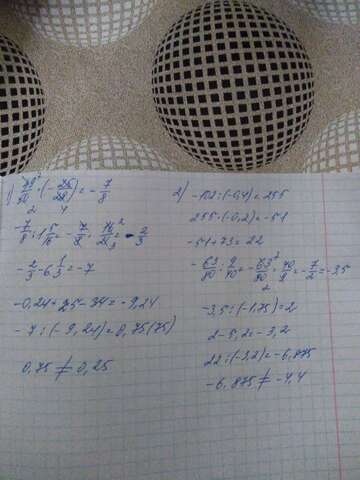 1)
· (-25/28) = -7/8
-7/8 : 1 5/16 = -7/8 · 16/21 = -2/3
-2/3 - 6 1/3 = -7
-0,24 - 34 = -9,24
-7 : (-9,24) = 0,75(75)
0,75 ≠ 0,25
2) -102 : (-0,4) = 255
255 · (-0,2) = -51
-51 + 73 = 22
-63/80 : 9/40 = -63/80 · 40/9 = -7/2 = -3,5
-3,5 : (-1,75) = 2
2 - 5,2 = -3,2
22 : (-3,2) = -6,875
-6,875 ≠ -4,4